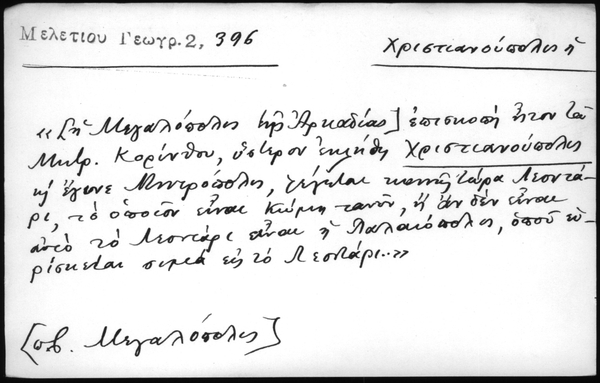 Μελετίου Γεωγρ. 2, 396
Χριστιανούπολις ἡ
«[ἡ Μεγαλόπολις τῆς Ἀρκαδίας] ἐπισκοπὴ ἦτον τοῦ
Μητρ. Κορίνθου, ὕστερον ἐκλήθη Χριστιανούπολις
κ̀ ἔγινε Μητρόπολις, λέγεται κοινῶς τώρα Λεοντά-
ρι, τὸ ὁποῖον εἶναι Κώμη τανῦν, ἢ ἂν δὲν εἶναι
αὐτὸ τὸ Λεοντάρι εἶναι ἡ Παλαιόπολις, ὁποῦ εὑ-
ρίσκεται σιμὰ εἰς τὸ Λεοντάρι..»
[πβ. Μεγαλόπολις]